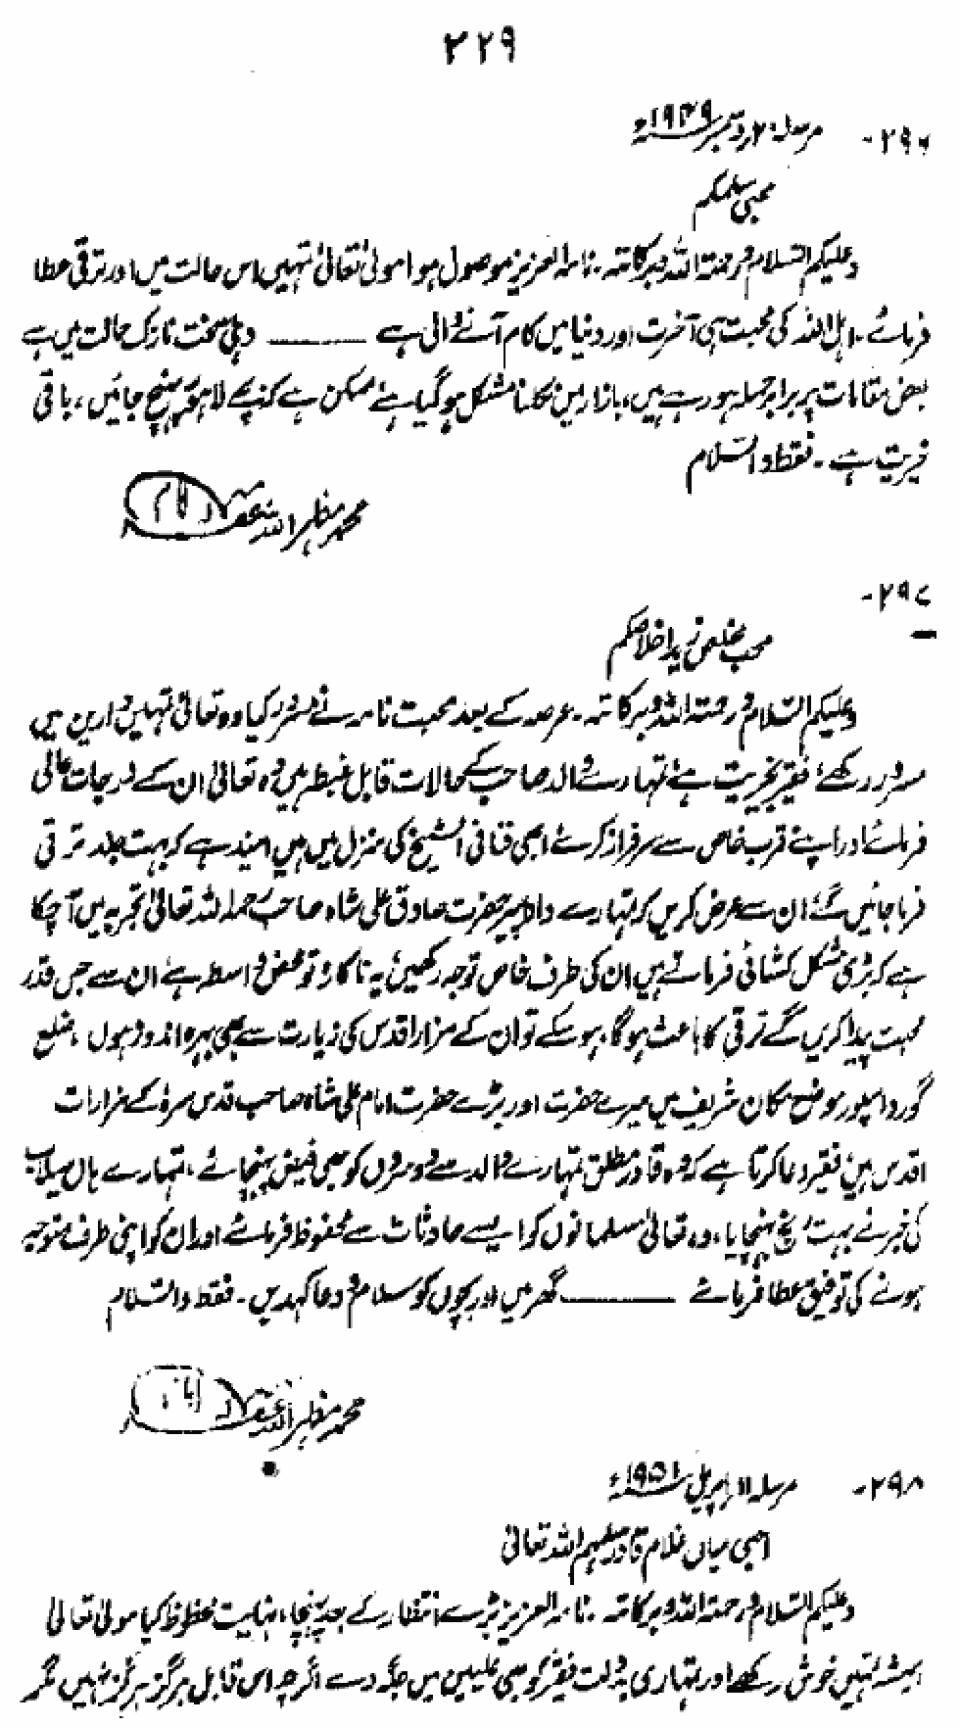 ۲۲۹
۲۹۶- مرسلہ ۲۰ دسمبر ۱۹۴۹ء
محبی سلمکم
وعلیکم السلام ورحمۃ اللہ وبرکاتہ۔ نامہ العزیز موصول ہوا مولیٰ تعالیٰ تمہیں اس حالت میں اور ترقی عطا
فرمائے۔ اہل اللہ کی محبت ہی آخرت اور دنیا میں کام آنے والی ہے ——— دہلی سخت نازک حالت میں ہے
بعض مقامات پر برابر حملہ ہو رہے ہیں، بازار میں نکلنا مشکل ہو گیا ہے ممکن ہے کہ بچے لاہور پہنچ جائیں، باقی
خیریت ہے۔ فقط والسلام
محمد مظہر اللہ غفرلہ امام
۲۹۷-
محب مخلص زید اخلاصکم
وعلیکم السلام ورحمۃ اللہ وبرکاتہ۔ عرصہ کے بعد محبت نامہ نے مسرور کیا وہ تعالیٰ تمہیں دارین میں
مسرور رکھے فقیر بخیریت ہے، تمہارے والد صاحب کے حالات قابل غبطہ ہیں وہ تعالیٰ ان کے درجات عالی
فرمائے اور اپنے قرب خاص سے سرفراز کرے ابھی فنافی الشیخ کی منزل میں ہیں امید ہے کہ بہت جلد ترقی
فرما جائیں گے، ان سے عرض کریں کہ تمہارے دادا پیر حضرت صادق علی شاہ صاحب رحمہ اللہ تعالیٰ تجربہ میں آچکا
ہے کہ بڑی مشکل کشائی فرماتے ہیں ان کی طرف خاص توجہ رکھیں، یہ ناکارہ تو محض واسطہ ہے، ان سے جس قدر
محبت پیدا کریں گے ترقی کا باعث ہوگا، ہو سکے تو ان کے مزار اقدس کی زیارت سے بھی بہرہ اندوز ہوں، ضلع
گورداسپور موضع مکان شریف میں میرے حضرت اور بڑے حضرت امام علی شاہ صاحب قدس سرہ کے مزارات
اقدس ہیں، فقیر دعا کرتا ہے کہ وہ قادر مطلق تمہارے والد سے دوسروں کو بھی فیض پہنچائے، تمہارے ہاں سیلاب
کی خبر نے بہت رنج پہنچایا، وہ تعالیٰ مسلمانوں کو ایسے حادثات سے محفوظ فرمائے اور ان کو اپنی طرف متوجہ
ہونے کی توفیق عطا فرمائے ——— گھر میں اور بچوں کو سلام و دعا کہدیں۔ فقط والسلام
محمد مظہر اللہ غفرلہ امام
۲۹۸- مرسلہ ۱۱ اپریل ۱۹۵۱ء
احبی میاں غلام قادر سلمہم اللہ تعالیٰ
وعلیکم السلام ورحمۃ اللہ وبرکاتہ۔ نامہ العزیز بڑے انتظار کے بعد پہنچا، نہایت محظوظ کیا مولیٰ تعالیٰ
ہمیشہ تمہیں خوش رکھے اور تمہاری بدولت فقیر کو بھی علیین میں جگہ دے اگرچہ اس قابل ہرگز ہرگز نہیں مگر